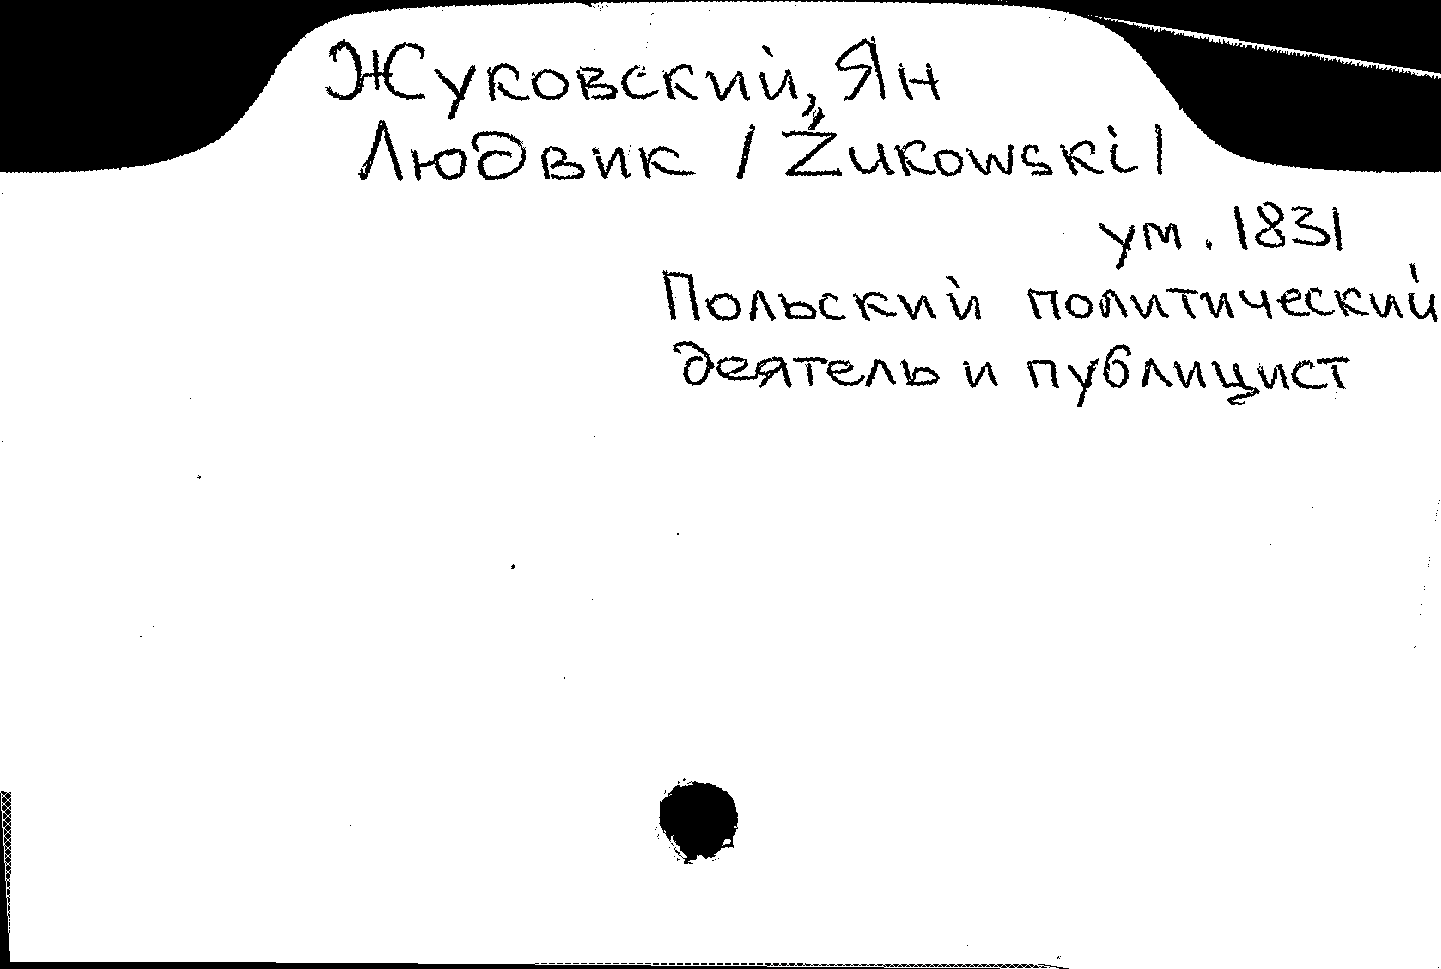 Жуковский, Ян
Людвик / Żukowski /
ум. 1831
Польский политический
деятель и публицист